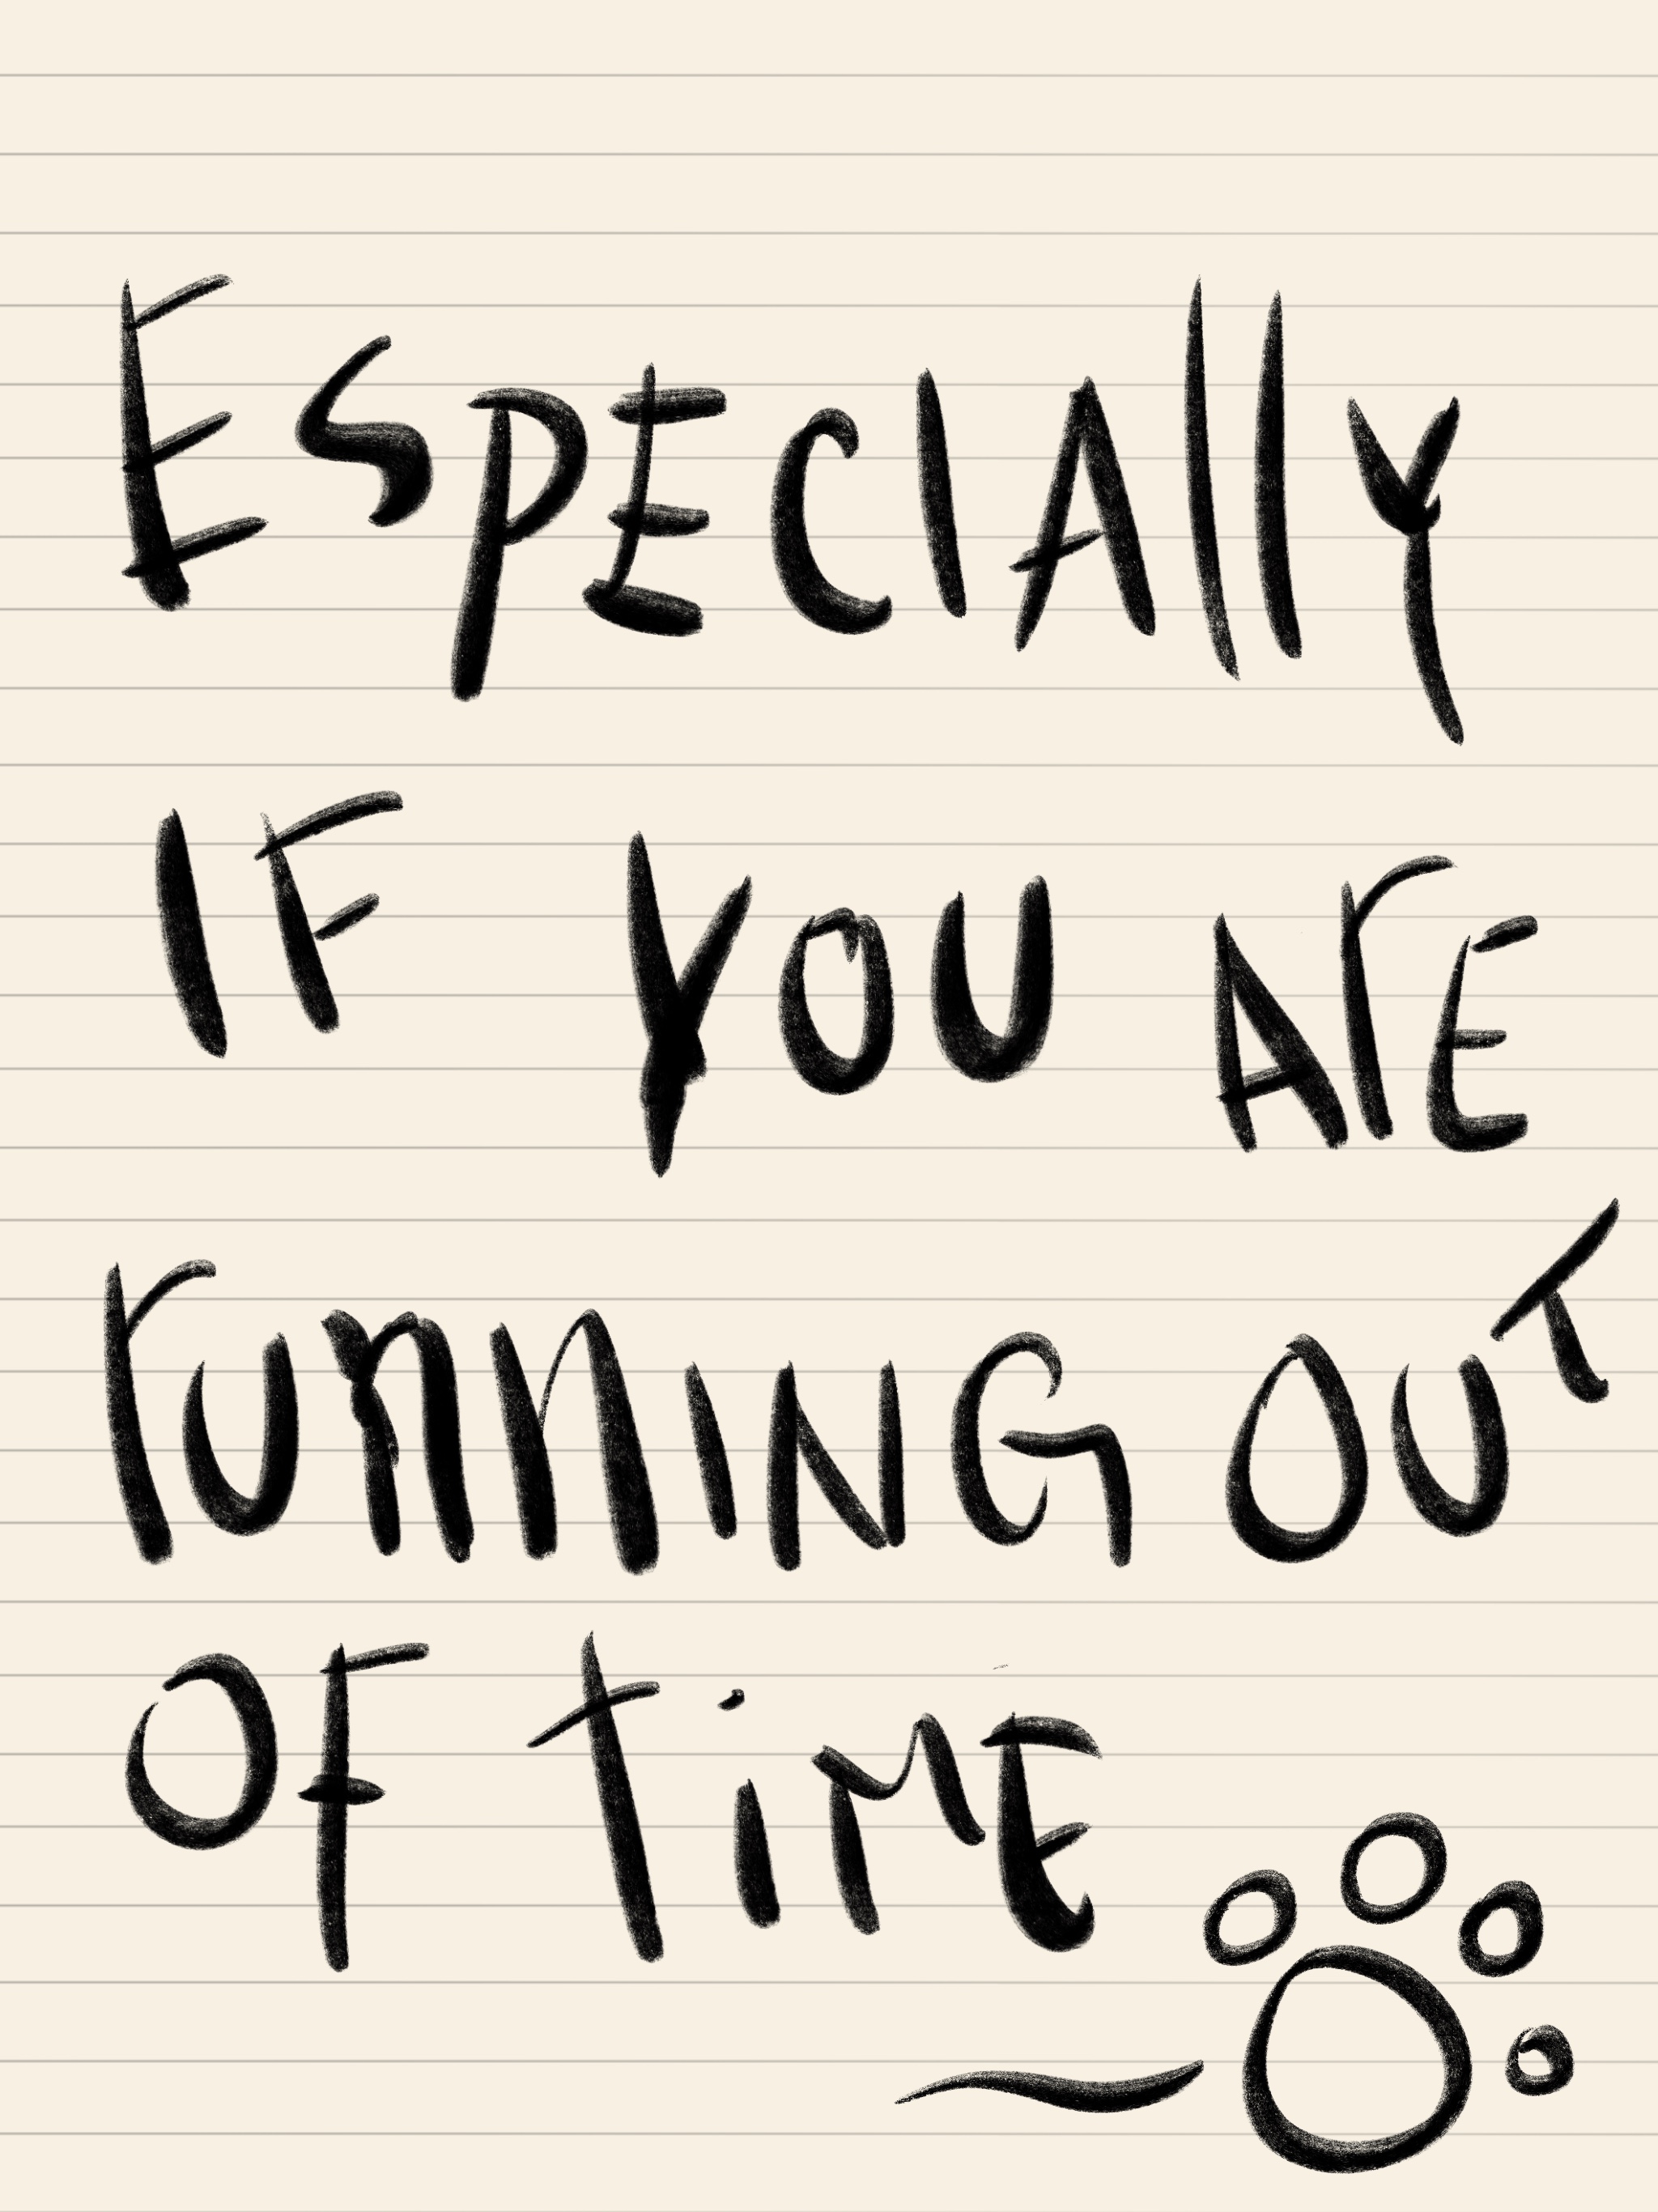 ESPECIAlly
IF YOU ArE
rUnnING OUT
OF TiME